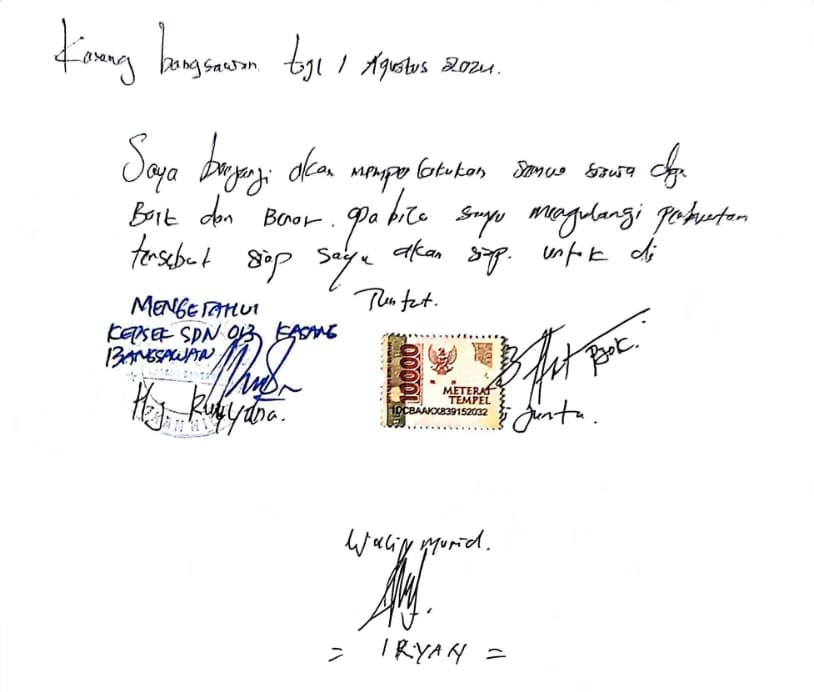 Kasang bangsawan tgl 1 Agustus 2024.
Saya berjanji akan memperlakukan semua siswa dgn
Baik dan Benar. apa bila saya megulangi perbuatan
tersebut siap saya akan siap. untuk di
Tuntut.
MENGETAHUI
KEPSEK SDN 013 KASANG
BANGSAWAN
Hj.
10000
METERAI
TEMPEL
1DCBAAKX839152032
Junta.
Wali murid.
= IRYAN =